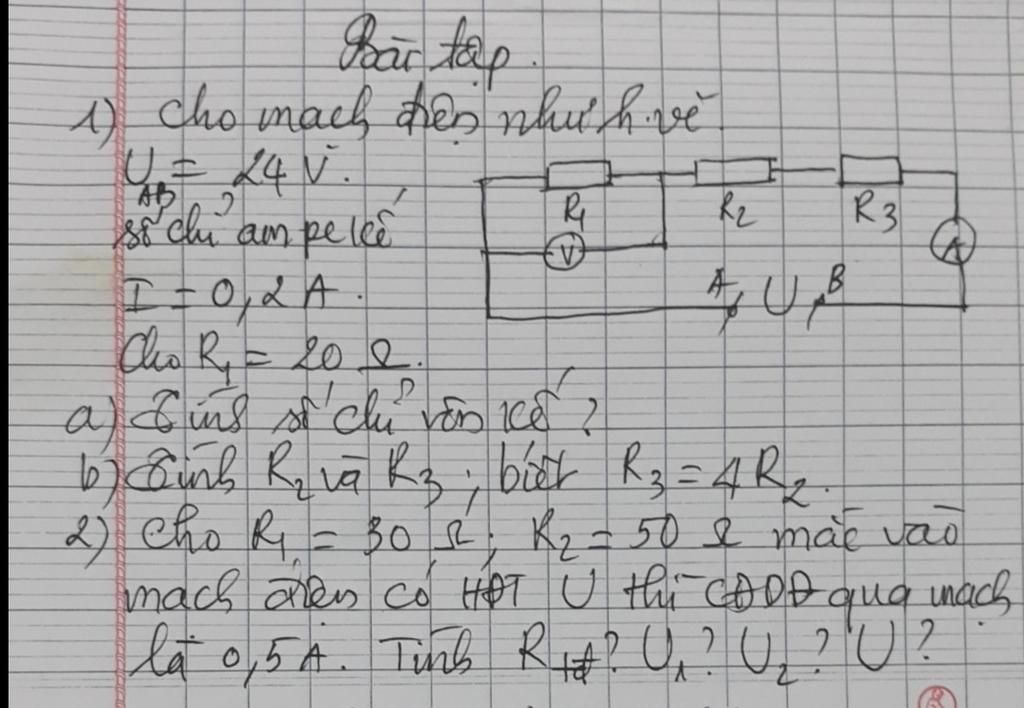 Bài tập.
1) Cho mạch điện như h.vẽ
U_AB = 24 V.
số chỉ ampe kế
I = 0,2 A.
Cho R1 = 20 Ω.
R1 R2 R3
V A
A U B
a) Tính số chỉ vôn kế?
b) Tính R2 và R3; biết R3 = 4R2.
2) Cho R1 = 30 Ω; R2 = 50 Ω mắc vào
mạch điện có HĐT U thì CĐDĐ qua mạch
là 0,5 A. Tính Rtđ? U1? U2? U?